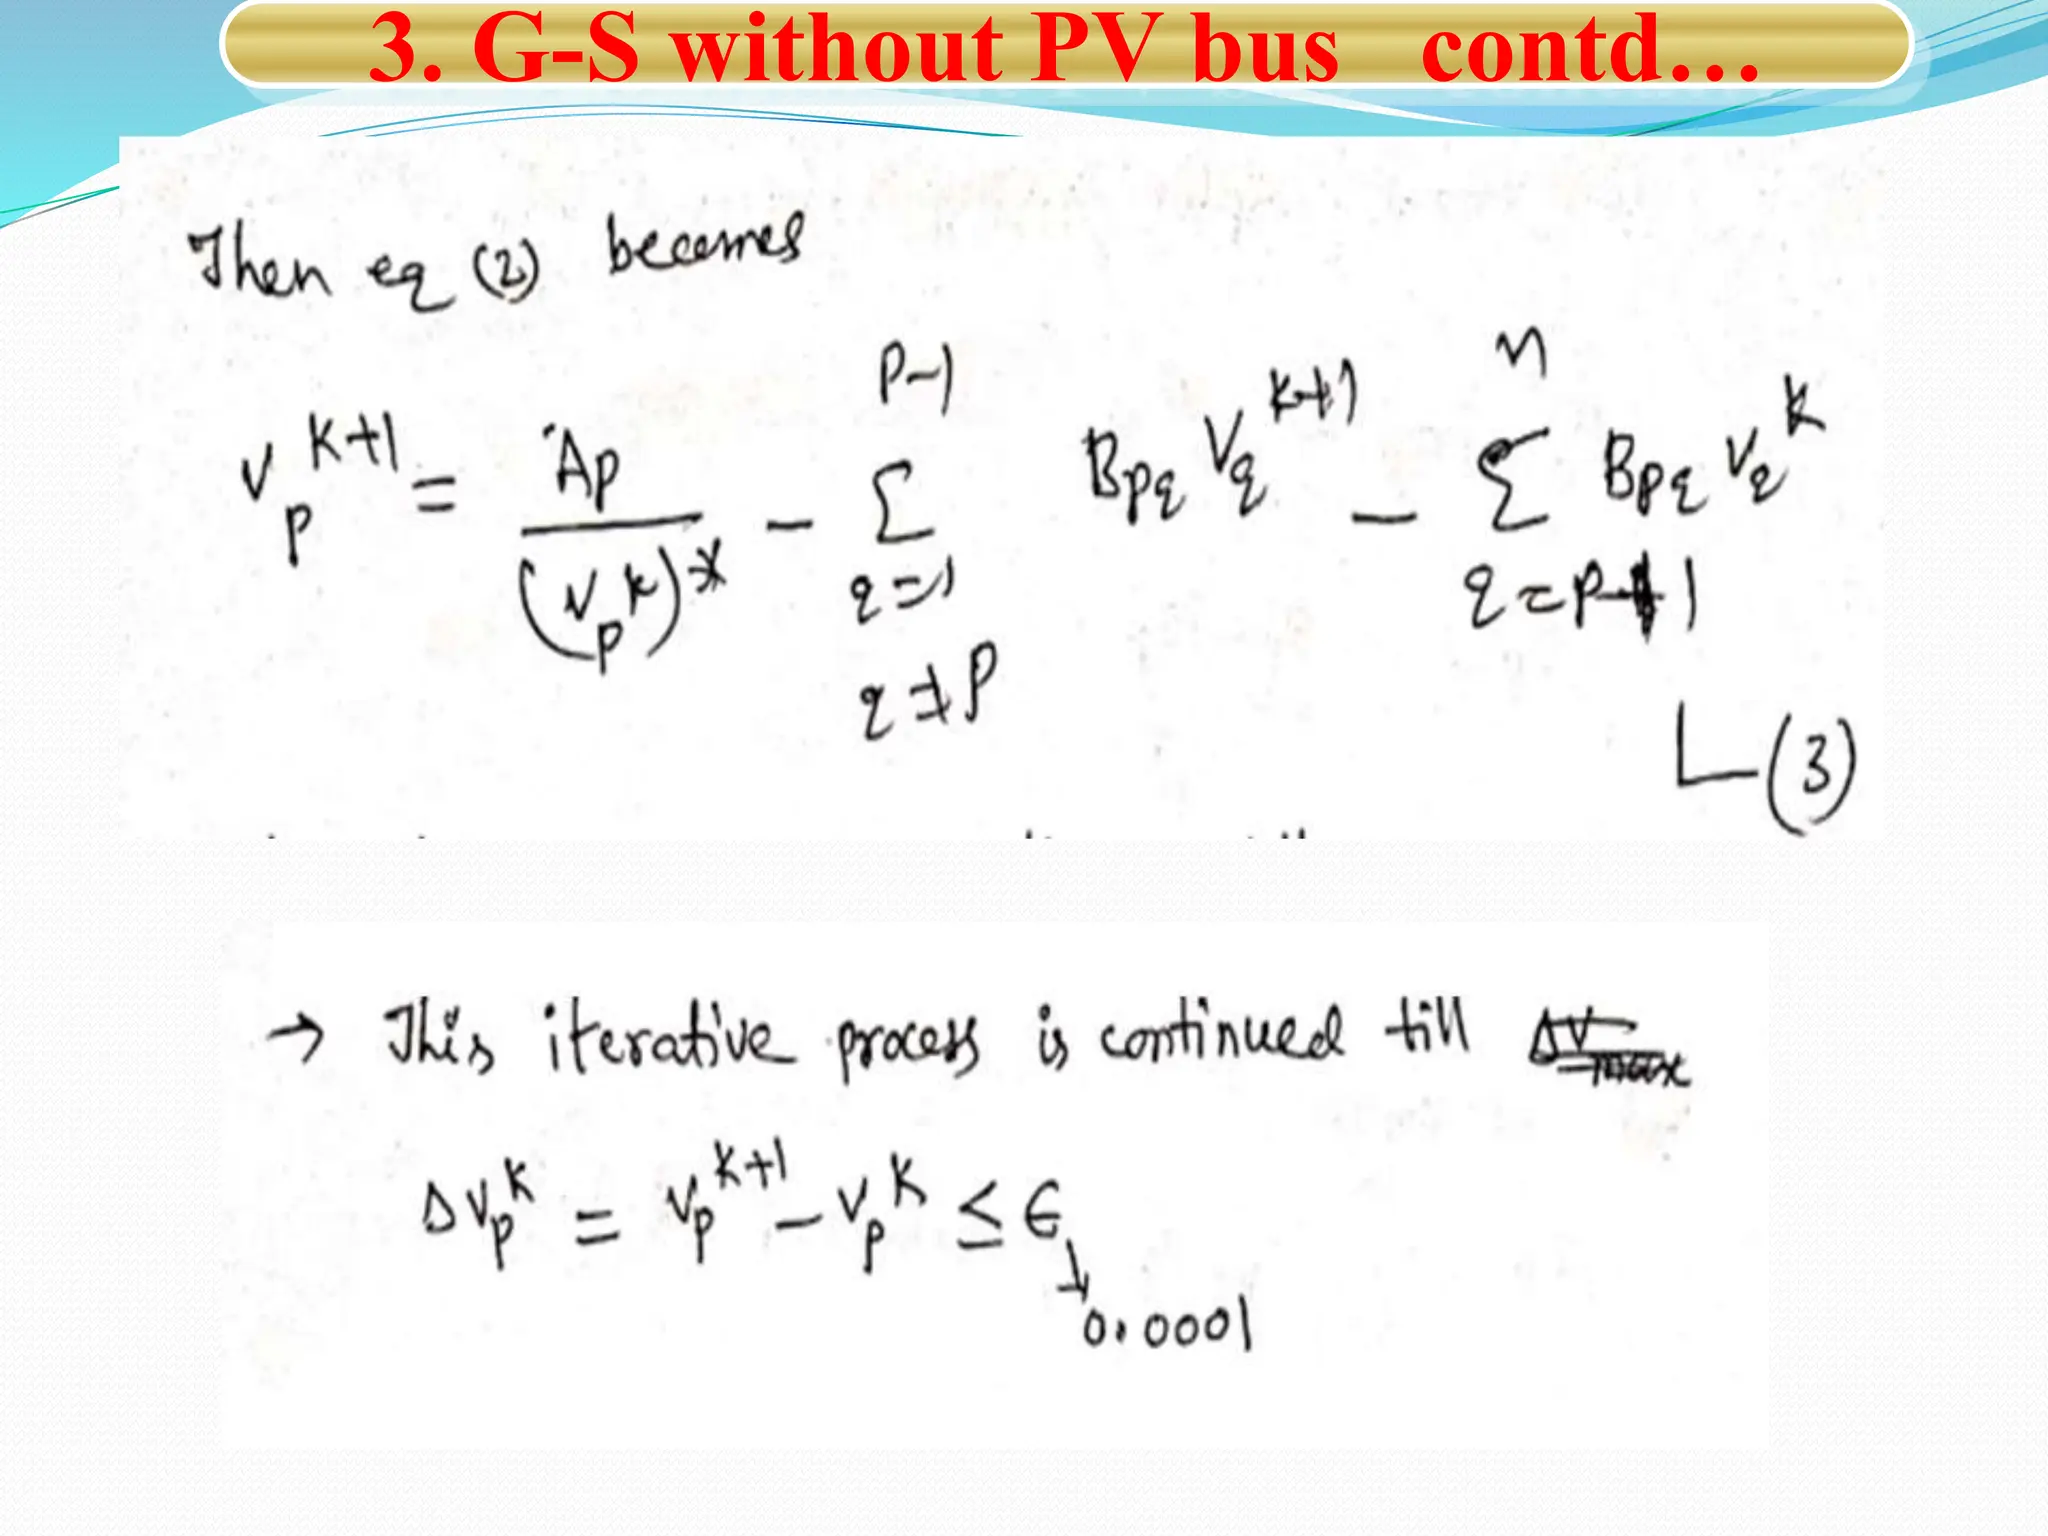 3. G-S without PV bus contd...
Then eq (2) becomes
V_p^{k+1} = A_p / (V_p^k)^* - Σ_{q=1, q≠p}^{p-1} B_{pq} V_q^{k+1} - Σ_{q=p+1}^{n} B_{pq} V_q^k
(3)
→ This iterative process is continued till
ΔV_p^k = V_p^{k+1} - V_p^k ≤ ε
0.0001